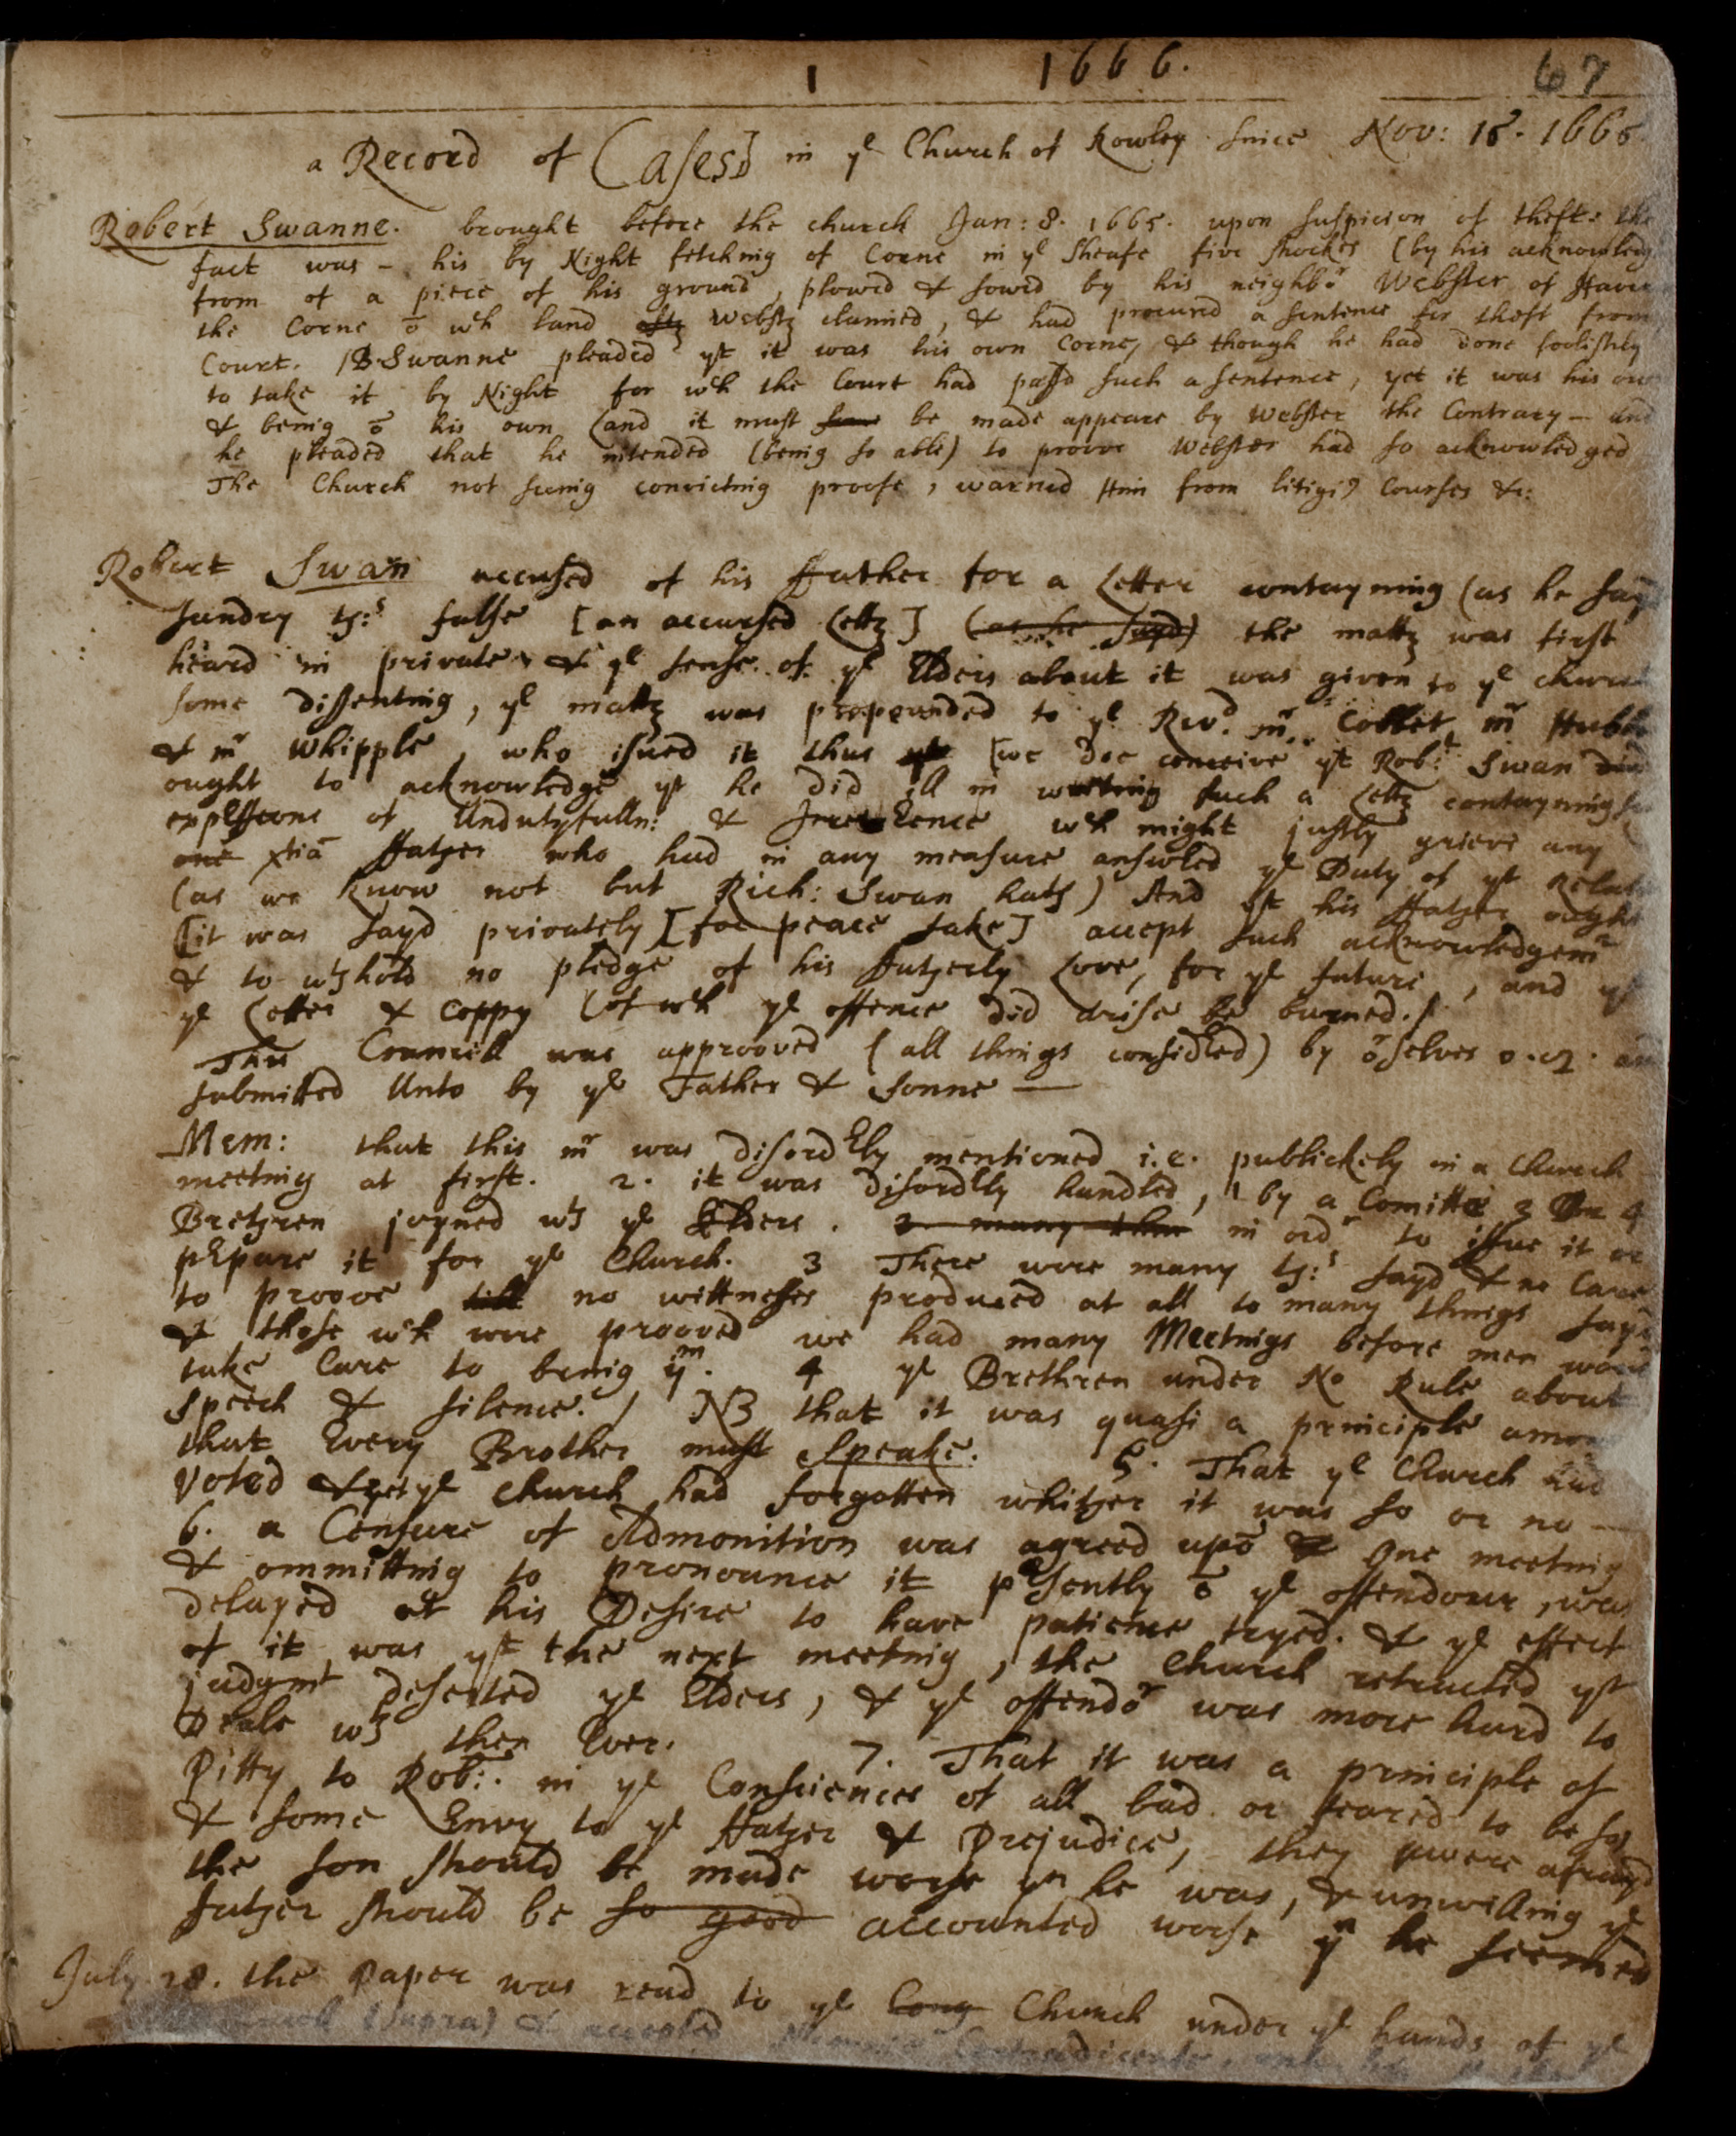 1 1666. 67
a Record of Cases in ye Church of Rowley since Nov: 15. 1665
Robert Swanne. brought before the church Jan: 8. 1665. upon suspicion of theft: the
fact was - his by Night fetching of Corne in ye Sheafe five shockes (by his acknowledg
from of a piece of his ground, plowed & sowed by his neighbor Webster of Haver
the Corne & wch land Webster claimed, & had procured a sentence for theft from
Court. B. Swanne pleaded yt it was his own Corne, & though he had done foolishly
to take it by Night for wch the Court had passd such a sentence, yet it was his own
& being his own (and it must be made appeare by Webster the Contrary - and
he pleaded that he intended (being so able) to proove Webster had so acknowledged
The Church not seeing convicting proofe, warned Him from litigi9 Courses &c:
Robert Swan accused of his ffather for a Letter contayning (as he say
sundry th:s false [an accursed Letter] (as he sayd) the matter was first
heard in private & ye sense of ye Elders about it was given to ye church
some dissenting, ye matter was propounded to ye Revd. mr Cobbet, mr Hubb
& mr Whipple, who isued it thus [we doe conceive yt Robt Swan
ought to acknowledge yt he did ill in writing such a Letter contayning
expressions of Undutyfulln: & Irreverence wch might justly grieve any
one xtiā ffather who had in any measure answered ye Duty of yt Relat
(as we know not but Rich: Swan hath) And yt his ffather ought
[it was sayd privately [for peace sake] accept such acknowledgemt
& to wthhold no pledge of his ffatherly Love, for ye future, and yt
ye Letter & Coppy (of wch ye offence did arise be burned./
This Councill was approoved (all things considered) by orselves an
submitted Unto by ye Father & Sonne —
Mem: that this mr was disorderly mentioned i.e. publickely in a Church
meeting at first. 2. it was disorderly handled, 1 by a Comitte 3 Or 4
Brethren joyned wth ye Elders. 3 many then in ordr to issue it or
prepare it for ye Church. 3 There were many th:s sayd & no Care
to proove till no wittnesses produced at all to many things sayd
& those wch were prooved we had many Meetings before men would
take Care to bring ym. 4 ye Brethren under No Rule about
speech & silence./ NB that it was quasi a principle among
that Every Brother must Speake. 5. That ye Church had
Voted & yet ye Church had forgotten whither it was so or no —
6. a Censure of Admonition was agreed upō One meeting
& ommitting to pronounce it presently ō ye offendour, was
delayed at his Desire to have patience tryed. & ye effect
of it was yt the next meeting, the Church retracted yt
judgmt deserted ye Elders, & ye offendor was more hard to
Deale wth then Ever. 7. That it was a principle of
Pitty to Robt:. in ye Consciences of all bad or feared to be so,
& some Envy to ye ffather & Prejudice, they were afrayd
the son should be made worse yn he was, & unwilling ye
father should be so good accounted worse yn he seemed
July 28. the Paper was read to ye Cong Church under ye hands of ye
(supra) & accepted